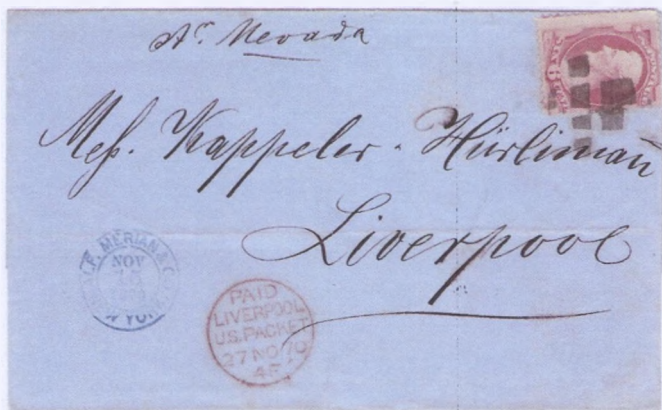 Str Nevada
Mess. Kappeler - Hürlimañ
Liverpool
MERIAN & C
NOV
YORK
PAID
LIVERPOOL
U.S. PACKET
27 NO 70
4E